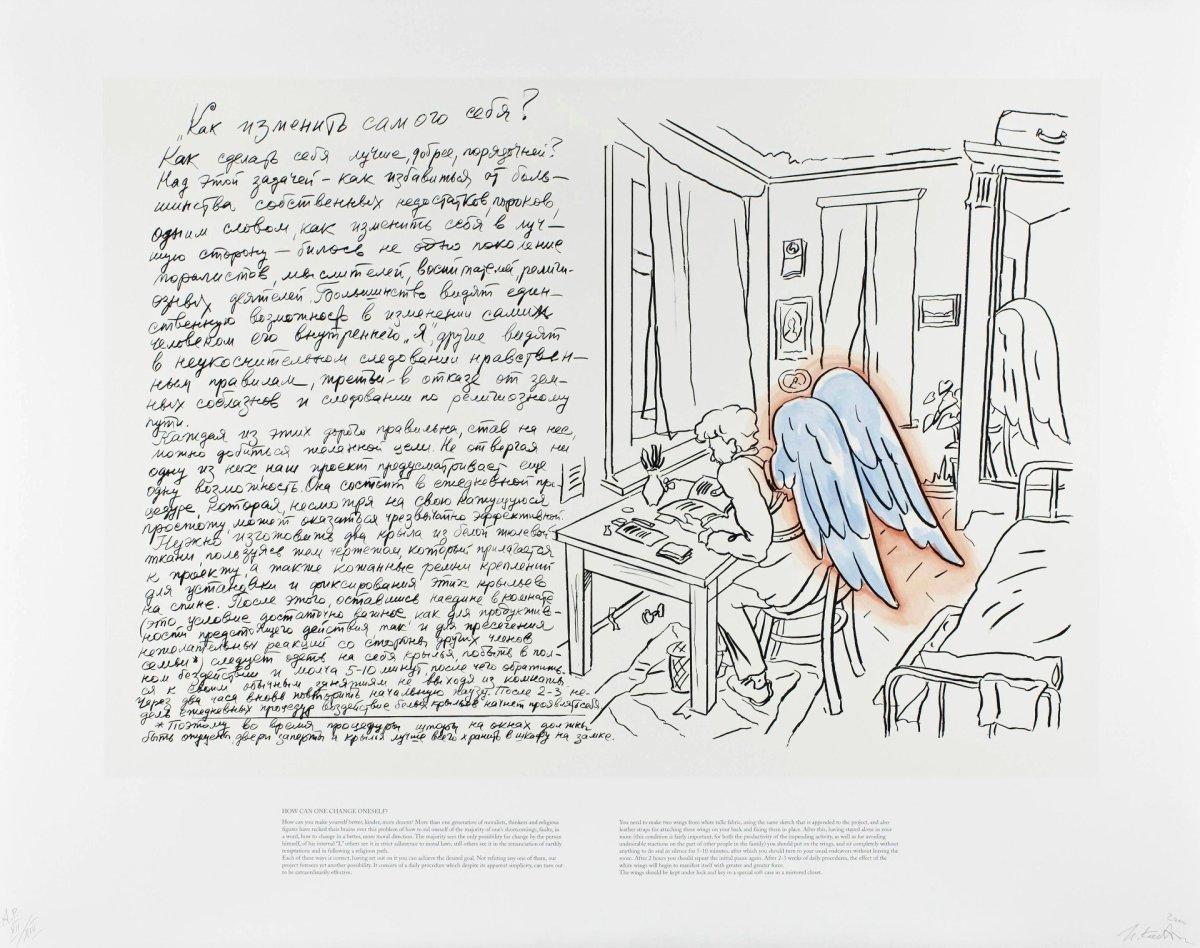 „Как изменить самого себя?
Как сделать себя лучше, добрее, порядочней?
Над этой задачей – как избавиться от боль-
шинства собственных недостатков, пороков,
одним словом, как изменить себя в луч-
шую сторону – билось не одно поколение
моралистов, мыслителей, воспитателей, религи-
озных деятелей. Большинство видят един-
ственную возможность в изменении самим
человеком его внутреннего „Я", другие видят
в неукоснительном следовании нравствен-
ным правилам, третьи – в отказе от зем-
ных соблазнов и следовании по религиозному
пути.
Каждая из этих дорог правильна, став на нее,
можно добиться желанной цели. Не отвергая ни
одну из них, наш проект предусматривает еще
одну возможность. Она состоит в ежедневной про-
цедуре, которая, несмотря на свою кажущуюся
простоту, может оказаться чрезвычайно эффективной.
Нужно изготовить два крыла из белой тюлевой
ткани, пользуясь тем чертежом, который прилагается
к проекту, а также кожанные ремни креплений
для установки и фиксирования этих крыльев
на спине. После этого, оставшись наедине в комнате
(это условие достаточно важное как для продуктив-
ности предстоящего действия так и для пресечения
нежелательных реакций со стороны других членов
семьи*) следует одеть на себя крылья, побыть в пол-
ном бездействии и молча 5-10 минут, после чего обратить-
ся к своим обычным занятиям не выходя из комнаты.
Через два часа вновь повторить начальную паузу. После 2-3 не-
дель ежедневных процедур воздействие белых крыльев начнет проявлять себя
* Поэтому во время процедуры шторы на окнах должны
быть опущены двери заперты и крылья лучше всего хранить в шкафу на замке.
HOW CAN ONE CHANGE ONESELF?
How can you make yourself better, kinder, more decent? More than one generation of moralists, thinkers and religious
figures have racked their brains over this problem of how to rid oneself of the majority of one's shortcomings, faults, in
a word, how to change in a better, more moral direction. The majority sees the only possibility for change by the person
himself, of his internal "I," others see it in strict adherence to moral laws, still others see it in the renunciation of earthly
temptations and in following a religious path.
Each of these ways is correct, having set out on it you can achieve the desired goal. Not refuting any one of them, our
project foresees yet another possibility. It consists of a daily procedure which despite its apparent simplicity, can turn out
to be extraordinarily effective.
You need to make two wings from white tulle fabric, using the same sketch that is appended to the project, and also
leather straps for attaching these wings on your back and fixing them in place. After this, having stayed alone in your
room (this condition is fairly important, for both the productivity of the impending activity, as well as for avoiding
undesirable reactions on the part of other people in the family) you should put on the wings, and sit completely without
anything to do and in silence for 5-10 minutes, after which you should turn to your usual endeavors without leaving the
room. After 2 hours you should repeat the initial pause again. After 2-3 weeks of daily procedures, the effect of the
white wings will begin to manifest itself with greater and greater force.
The wings should be kept under lock and key in a special soft case in a mirrored closet.
A.P.
VII/XIV